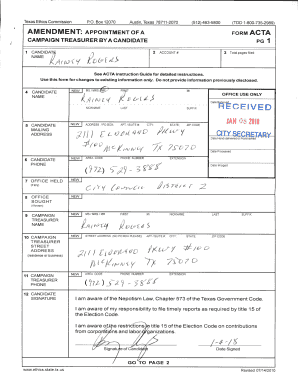 Texas Ethics Commission P.O. Box 12070 Austin, Texas 78711-2070 (512) 463-5800 (TDD 1-800-735-2989)
AMENDMENT: APPOINTMENT OF A CAMPAIGN TREASURER BY A CANDIDATE
FORM ACTA
PG 1
1 CANDIDATE NAME
Rainey Rogers
2 ACCOUNT #
3 Total pages filed:
See ACTA Instruction Guide for detailed instructions.
Use this form for changes to existing information only. Do not provide information previously disclosed.
4 CANDIDATE NAME
NEW MS / MRS / MR FIRST MI
Rainey Rogers
NICKNAME LAST SUFFIX
OFFICE USE ONLY
RECEIVED
2018
CITY SECRETARY
Date Processed
Date Imaged
5 CANDIDATE MAILING ADDRESS
NEW ADDRESS / PO BOX; APT / SUITE #; CITY; STATE; ZIP CODE
2111 Eldorado Pkwy
#100
McKinney TX 75070
6 CANDIDATE PHONE
NEW AREA CODE PHONE NUMBER EXTENSION
(972) 529-3888
7 OFFICE HELD
(if any)
NEW
City Council District 2
8 OFFICE SOUGHT
(if known)
NEW
9 CAMPAIGN TREASURER NAME
NEW MS / MRS / MR FIRST MI NICKNAME LAST SUFFIX
Rainey Rogers
10 CAMPAIGN TREASURER STREET ADDRESS
(residence or business)
NEW STREET ADDRESS (NO PO BOX PLEASE); APT / SUITE #; CITY; STATE; ZIP CODE
2111 Eldorado Pkwy #100
McKinney TX 75070
11 CAMPAIGN TREASURER PHONE
NEW AREA CODE PHONE NUMBER EXTENSION
(972) 529-3888
12 CANDIDATE SIGNATURE
I am aware of the Nepotism Law, Chapter 573 of the Texas Government Code.
I am aware of my responsibility to file timely reports as required by title 15 of
the Election Code.
I am aware of the restrictions in title 15 of the Election Code on contributions
from corporations and labor organizations.
Signature of Candidate
Date Signed
GO TO PAGE 2
www.ethics.state.tx.us
Revised 01/14/2010